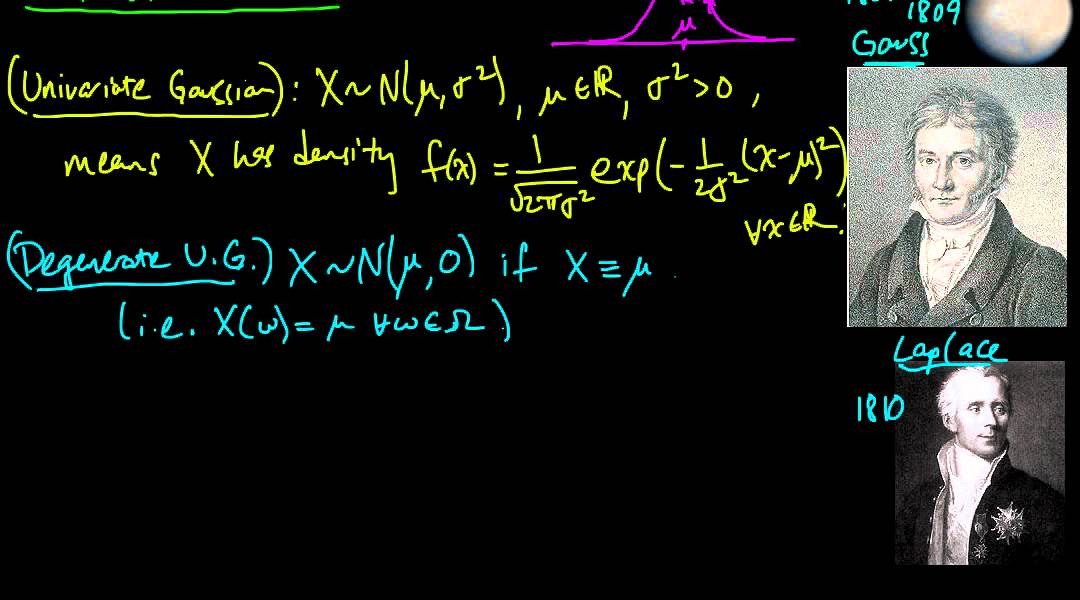 μ
1809
Gauss
(Univariate Gaussian): X ~ N(μ, σ²), μ ∈ ℝ, σ² > 0,
means X has density f(x) = 1/√(2πσ²) exp(-1/(2σ²) (x-μ)²)
∀x∈ℝ.
(Degenerate U.G.) X ~ N(μ, 0) if X ≡ μ.
(i.e. X(ω) = μ ∀ω∈Ω)
Laplace
1810